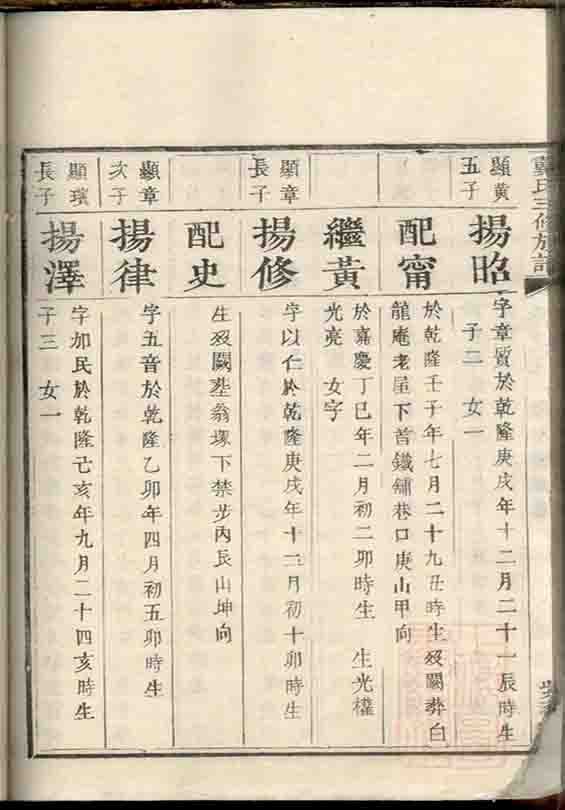 戴氏三修族譜
顯黄
五子
揚昭
字章質於乾隆庚戌年十二月二十一辰時生
子二　女一
配甯
於乾隆壬子年七月二十九丑時生歿闕葬白
龍庵老屋下首鐵鋪巷口庚山甲向
繼黃
於嘉慶丁巳年二月初二卯時生　生光權
光亮　女字
顯章
長子
揚修
字以仁於乾隆庚戌年十二月初十卯時生
配史
生歿闕塟翁塚下禁步內艮山坤向
顯章
次子
揚律
字五音於乾隆乙卯年四月初五卯時生
顯璸
長子
揚澤
字加民於乾隆己亥年九月二十四亥時生
子三　女一